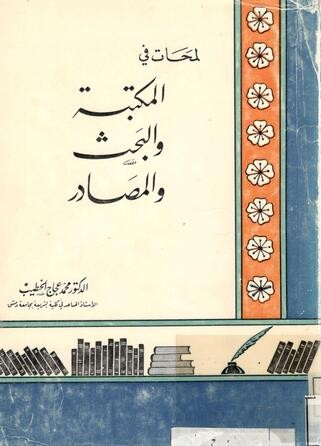 لمحات في
المكتبة
والبحث
والمصادر
الدكتور محمد عجاج الخطيب
الأستاذ المساعد في كلية الشريعة بجامعة دمشق